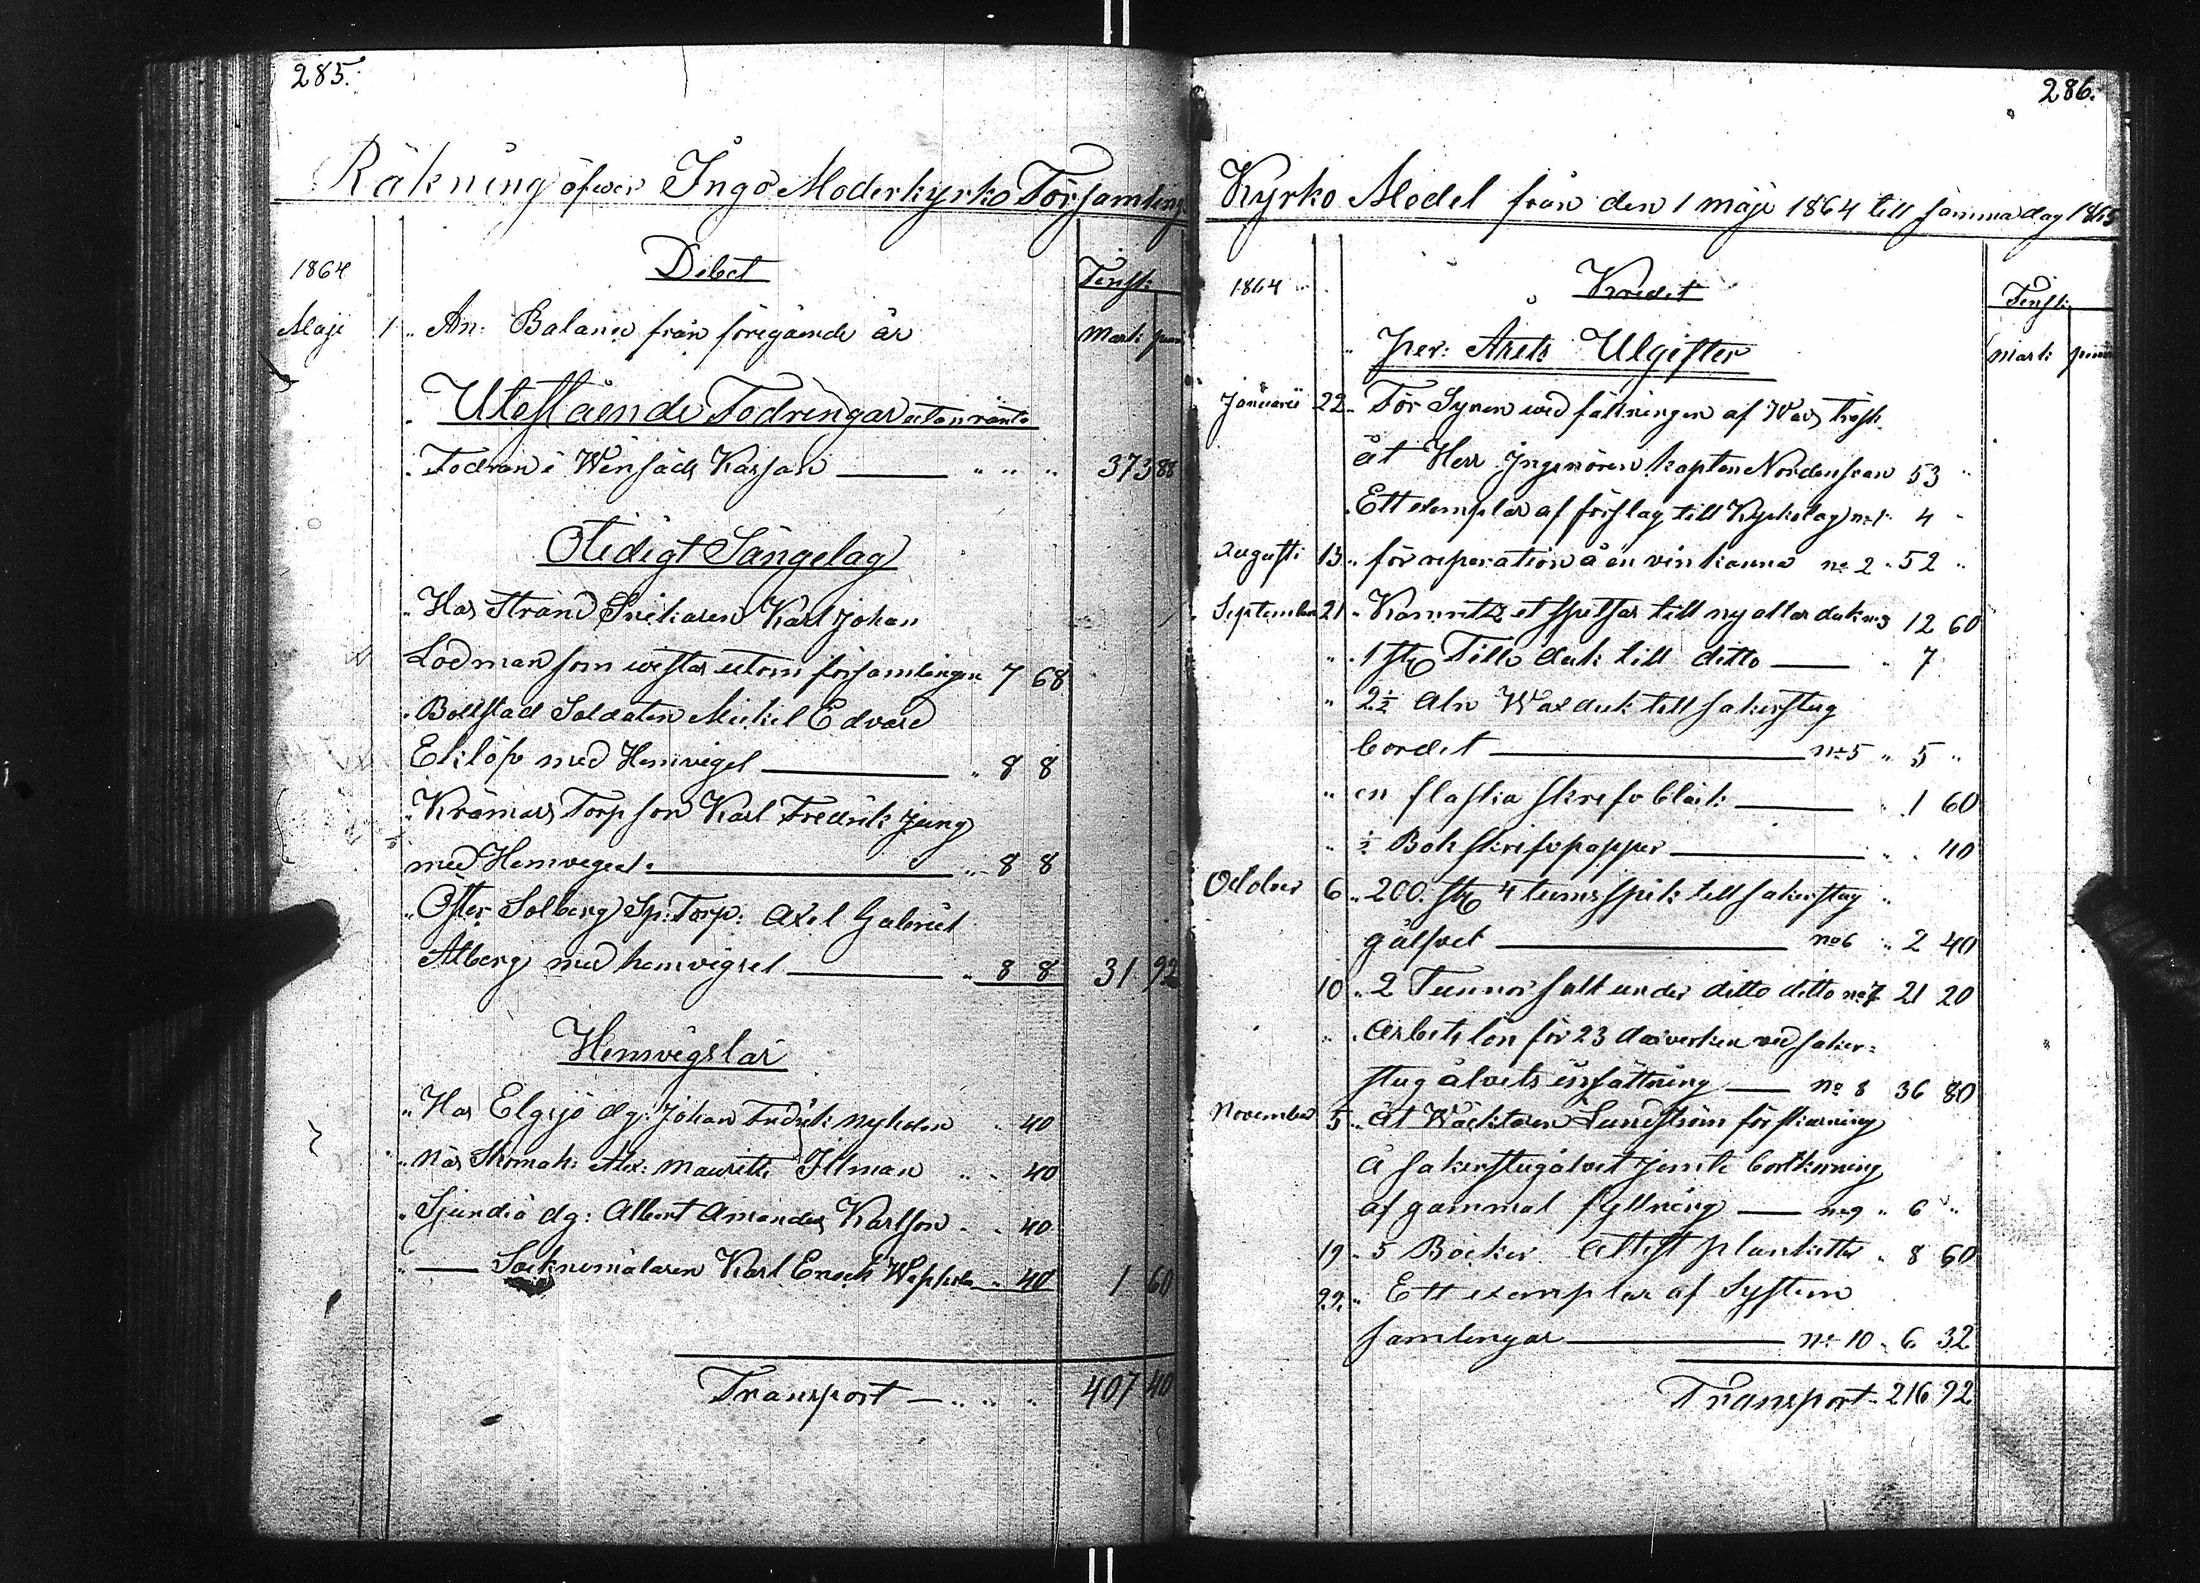 285.
Räkning öfwer Ingo Moderkyrko Församlings
Debet
1864
Finsk:
Maji 1 " An: Balance från föregående år
Mark: penni
Utestående Fodringar utan ränta
Fodran i Kassan " " " 373 88
Otidigt Sängelag
" Hos Strand Snikaren Karl Johan
Lodman som wistas utom församlingen 7 68
" Bollstad Soldaten Mickel Edvard
Eklöf med Hemvigsel " 8 8
" Krämars Torp son Karl Fredrik Jung
med Hemvegsel. " 8 8
" Öster Solberg Sp: Torp: Axel Gabriel
Alberg med hemvigsel " 8 8 31 92
Hemvigslar
" Hos Elgsjö dg: Johan Fredrik Nyholm " 40
" När Skomak: Alex: Maurits Illman " " 40
" Sjundiö dg: Albert Amandus Karlson " " 40
" — Socknemålaren Karl Enock " 40 1 60
Transport — " " " 407 40
286.
Kyrko Medel från den 1 Maji 1864 till samma dag 1865
Kredit
1864
Finsk:
" per: Årets Utgifter
Mark: penni
Januari 22 " För Synen wid fällningen af träsk
åt Herr Ingeniören kapten Nordensvan 53 "
" Ett exemplar af förslag till Kyrkolag no 1 4 "
Augusti 13 " för reperation å en vin kanna no 2 " 52 "
September 21 " et spetsar till ny altar duk no 3 12 60
" " 1 st: duk till ditto " 7
" 2 1/2 Aln Wax duk till sakerstug
bordet no 5 " 5 "
" en flaska skrif bläck " 1 60
" 1/2 Bok skrifpapper " " 40
October 6 " 200 st: 4 tums spik till sakerstug "
gålfvet no 6 " 2 40
10 " 2 Tunnor salt under ditto ditto no 7 21 20
" " Arbets lön för 23 dasverken wed saker=
stug ålvets insättning no 8 36 80
November 5 " At Wäcktaren Lundström för skurning
å sakerstugålvet jemte bortkörning
af gammal fyllning no 9 " 6 "
19 " 5 Böcker Attest planketter " 8 60
22. " Ett exemplar af System
samlingar no 10 " 6 32
Transport " 216 92